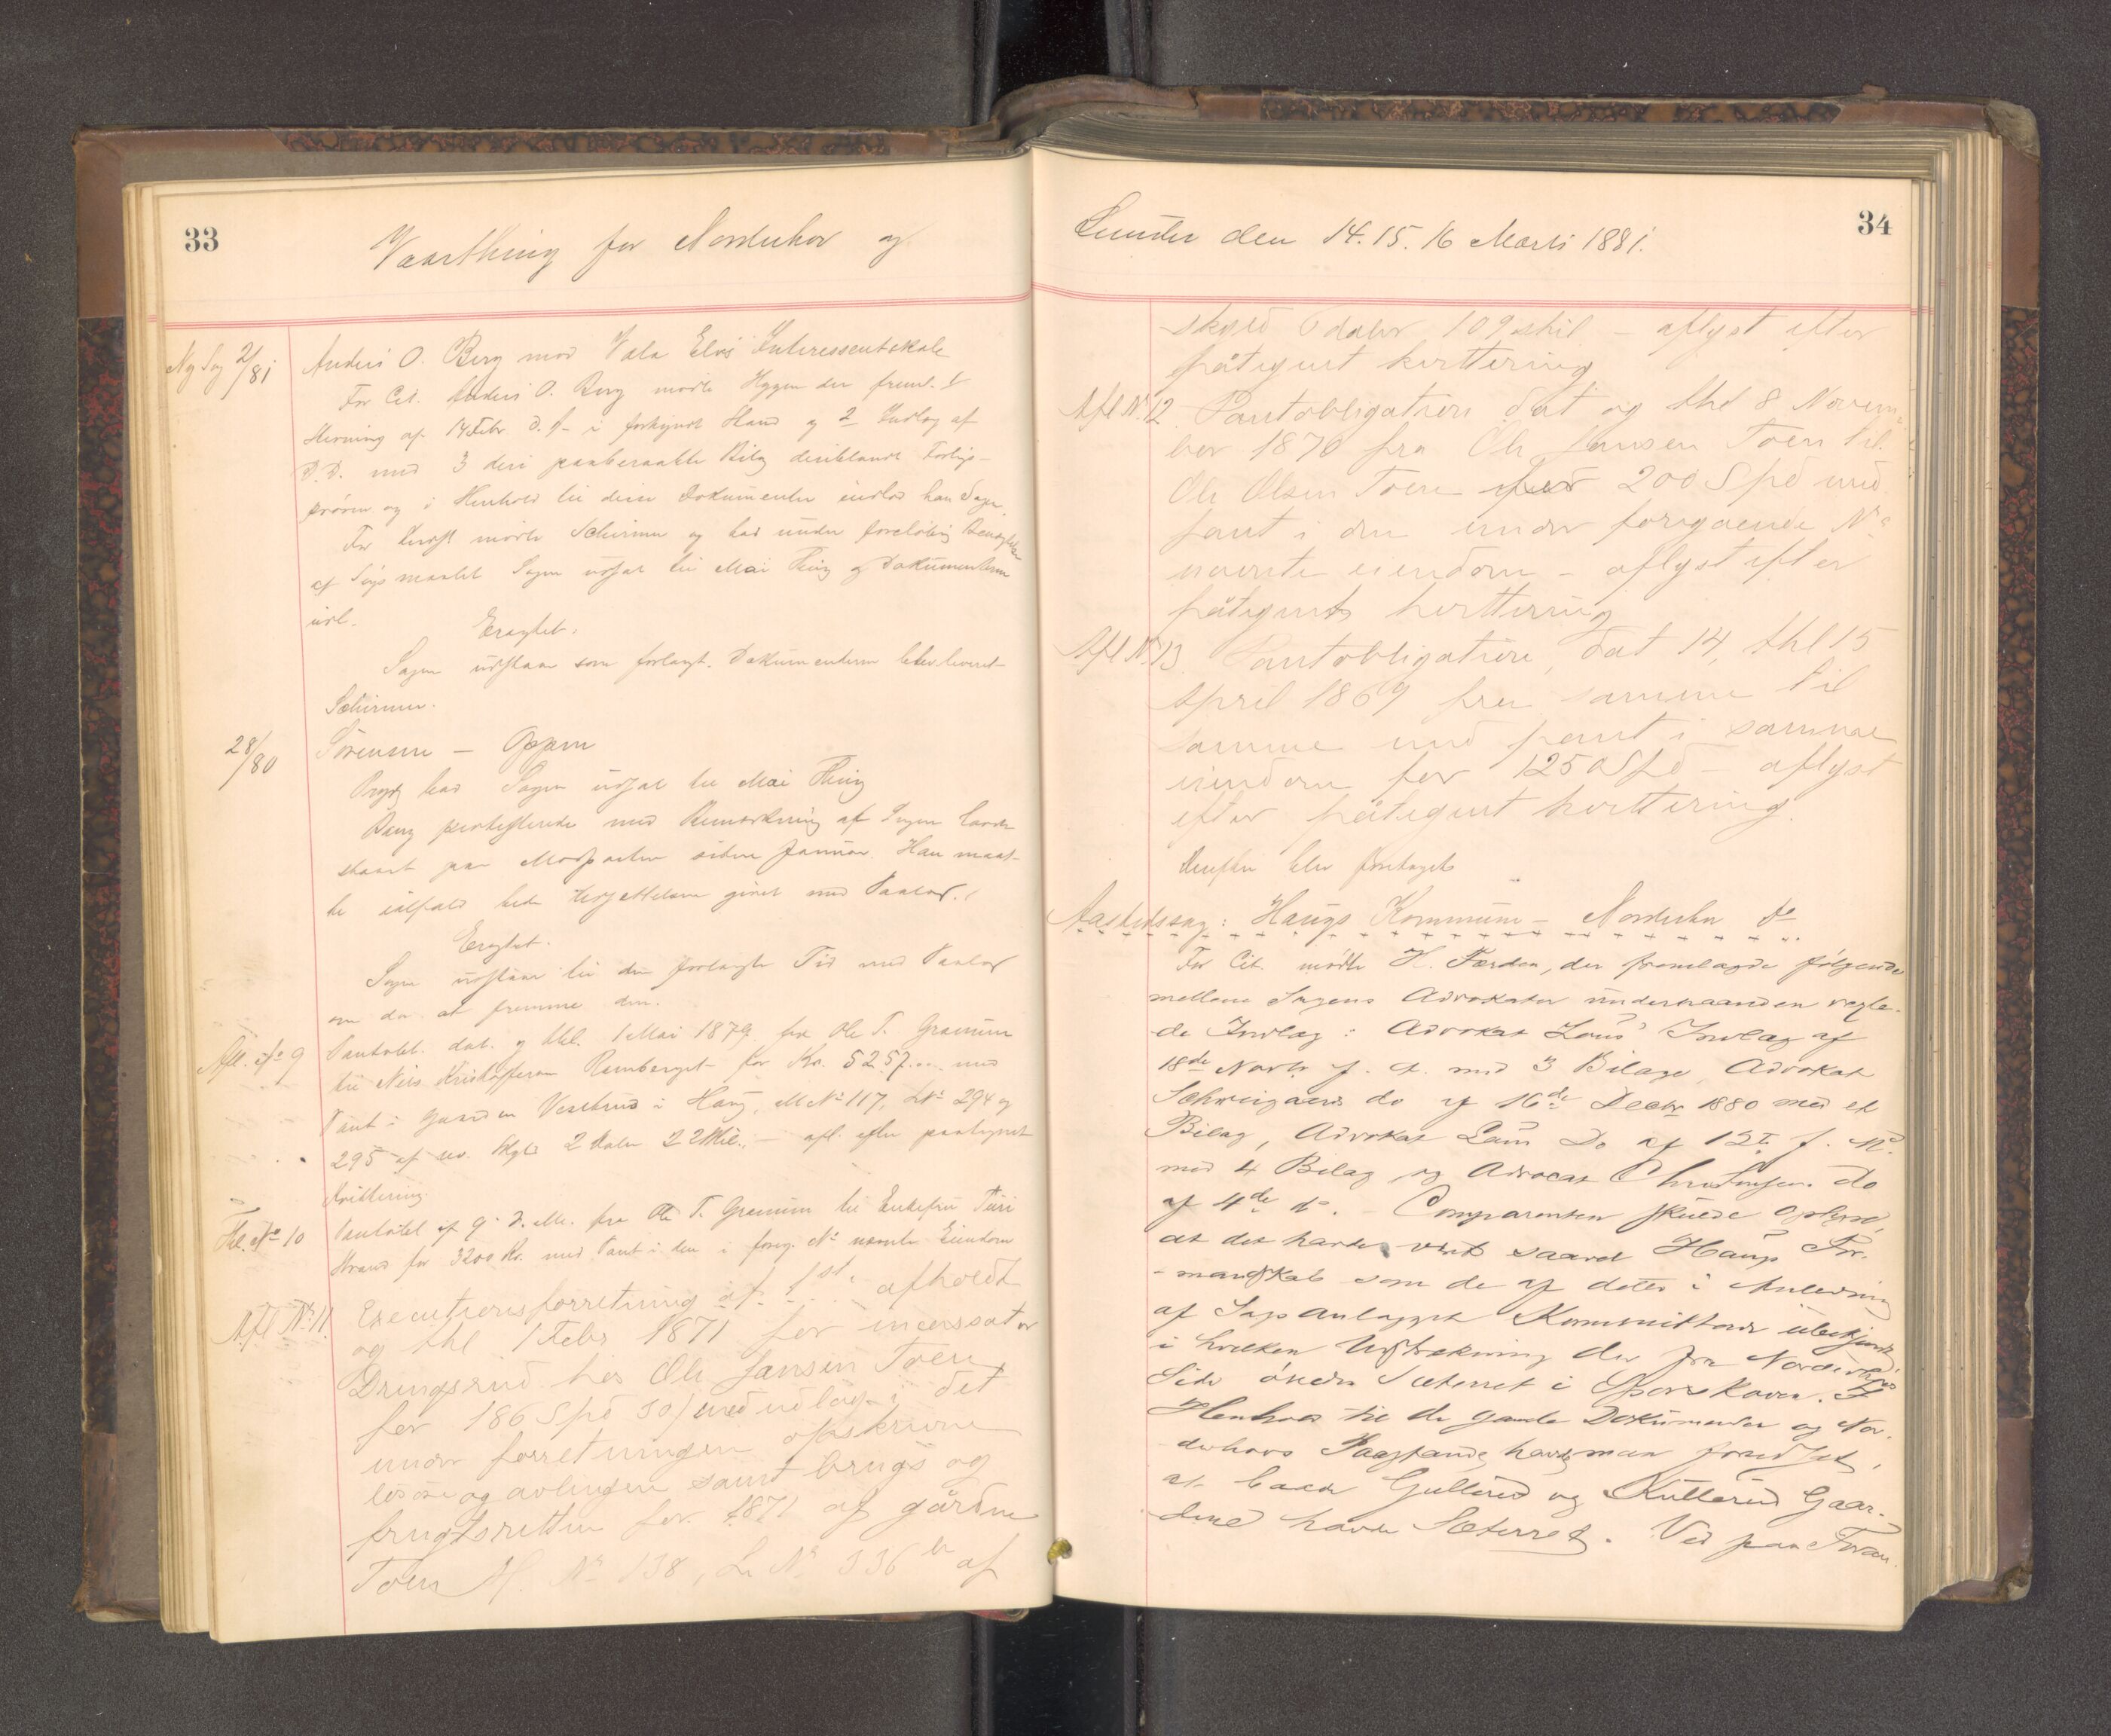 33
Vaarthing for Norderhov og
Ny Sag 2/81 Anders O. Berg mod Væla Elvs Interessentskab
For Cit. Anders O. Berg mødte Hygen der freml.
Stevning af 14 Febr d. A. i forkyndt Stand og 2 Indlæg af
D.D. med 3 deri paaberaabte Bilag deriblandt Forligs-
prøven og i Henhold til disse Dokumenter indlod han Sagen
For Indst mødte Schirmer og bad under foreløbig Benægtelse
af Søgsmaalet Sagen udsat til Mai Thing og Dokumenterne
udl.
Eragtet:
Sagen udstaar som forlangt. Dokumenterne blev leveret
Schirmer.
28/80 Sørensen – Oppen
bad Sagen udsat til Mai Thing
Berg protesterede med Bemærkning af Sagen havde
staaet paa Modparten siden Januar. Han maat-
te ialfald bede Udsættelsen givet med Paalæg.
Eragtet.
Sagen udstaar til den forlangte Tid med Paalæg
om da at fremme den.
Afl. No 9 Pantobl. dat. og thl. 1 Mai 1879 fra Ole T. Granum
til Nils Kristoffersen Ramberget for Kr. 5257... med
Pant i Gaarden Vesetrud i Haug, M No 117, L No 294 og
295 af rev. Skyld 2 Daler 22 Skil. – afl. efter paategnet
Kvittering.
Thl. No 10 Pantobl af 9 d. M. fra Ole T. Granum til Enkefru Turi
Strand for 3200 Kr. med Pant i den i foreg. No nævnte Eiendom
Afl No 11 Executionsforretning af 1st. afholdt
og thl 1 Febr 1871 for incassator
Dringsrud hos Ole Jansen Toen
for 186 Spd 50 / med udlæg i det
under forretningen opskrevne
løsøre og avlingen samt brugs og
frugtsretten for 1871 af gården
Toen M. No 138, L No 336 b af
34
Lunder den 14. 15. 16 Marts 1881.
skyld 6 daler 109 skil – aflyst efter
påtegnet kvittering
Afl No 12 Pantobligation dat og thl 8 Novem-
ber 1870 fra Ole Jansen Toen til
Ole Olsen Toen for 200 Spd med
pant i den under foregaaende No
nævnte eiendom – aflyst efter
påtegnet kvittering
Afl No 13 Pantobligation, dat 14, thl 15
April 1869 fra samme til
samme med pant i samme
eiendom for 1250 Spd – aflyst
efter påtegnet kvittering.
Derefter blev foretaget
Aastedssag: Haugs Kommune – Norderhov do
For Cit. mødte H. Færden, der fremlagde følgende
mellem Sagens Advokater underhaanden vexle-
de Indlæg: Advokat Lous' Indlæg af
18de Novbr f. A. med 3 Bilage, Advokat
Schweigaards do af 16de Decbr 1880 med et
Bilag, Advokat Lous Do af 12te f. Md
med 4 Bilag og Advocat do
af 4de ds. – Comparenten skulde oplyse,
at det havde været saavel Haugs For-
mandskab som de af dette i Anledning
af Saganlægget Kommitterede ubekjendt
i hvilken Udstrækning der fra Norderhovs
Side øvedes Sæterret i Skoven. I
Henhold til de gamle Dokumenter og Nor-
derhovs Paastand, havde man forudsat,
at baade Gullerud og Kullerud Gaar-
dene havde Sæterret. Ved paa Foran-